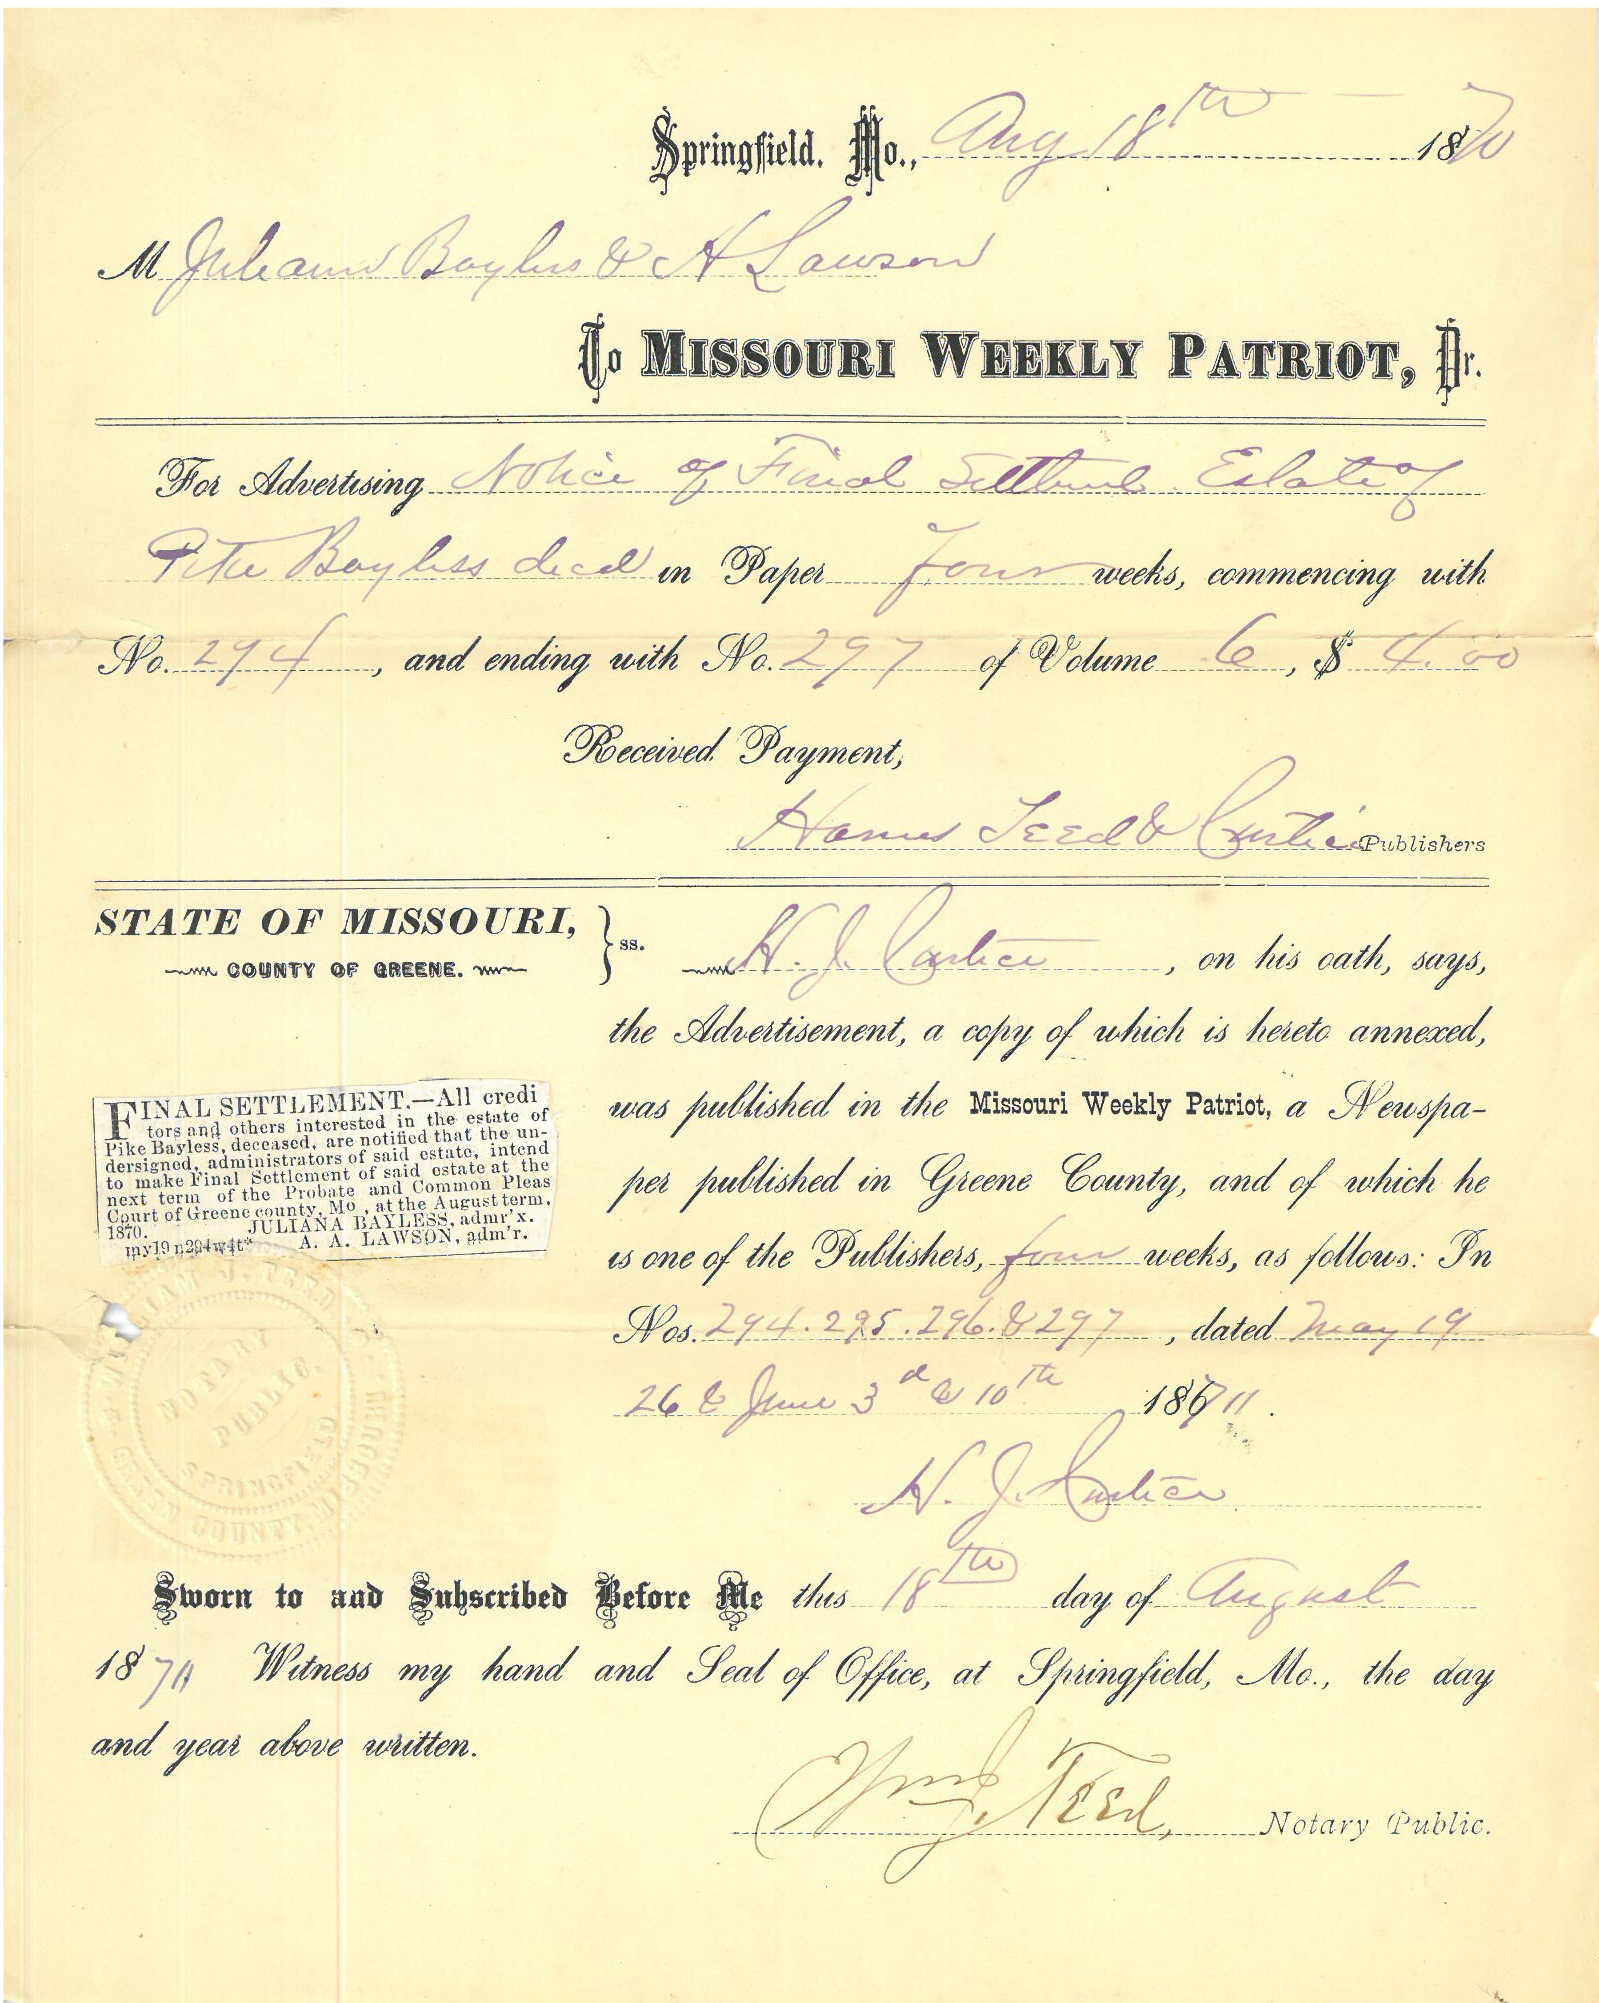 Springfield, Mo., Aug 18th 1870
M Juliann Bayless & A Lawson
To MISSOURI WEEKLY PATRIOT, Dr.
For Advertising Notice of Final Settlemt. Estate of
Pike Bayless decd in Paper four weeks, commencing with
No. 294, and ending with No. 297 of Volume 6, $ 4.00
Received Payment,
Teed & Curtice Publishers
STATE OF MISSOURI, } ss.
COUNTY OF GREENE.
H. J. Curtice, on his oath, says,
the Advertisement, a copy of which is hereto annexed,
was published in the Missouri Weekly Patriot, a Newspa-
per published in Greene County, and of which he
is one of the Publishers, four weeks, as follows: In
Nos. 294. 295. 296. & 297, dated May 19
26 & June 3d & 10th 1870.
H. J. Curtice
FINAL SETTLEMENT.—All credi
tors and others interested in the estate of
Pike Bayless, deceased, are notified that the un-
dersigned, administrators of said estate, intend
to make Final Settlement of said estate at the
next term of the Probate and Common Pleas
Court of Greene county, Mo, at the August term,
1870. JULIANA BAYLESS, admr'x.
my19n294w4t* A. A. LAWSON, adm'r.
WILLIAM J. TEED
NOTARY
PUBLIC.
SPRINGFIELD
GREENE COUNTY, MISSOURI
Sworn to and Subscribed Before Me this 18th day of August
1870 Witness my hand and Seal of Office, at Springfield, Mo., the day
and year above written.
Wm J. Teed, Notary Public.